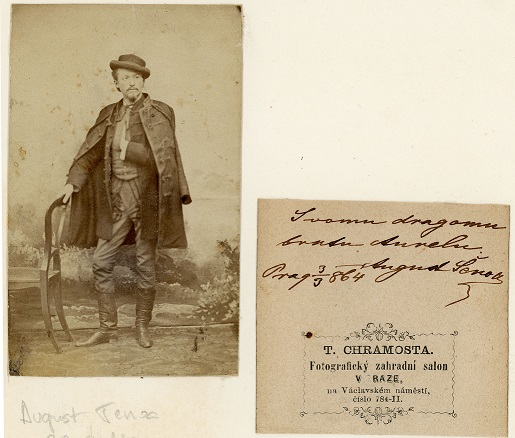 Svomu dragomu
bratu Aurelu
Prag 3/3 864 August Šenoa
T. CHRAMOSTA.
Fotografický zahradní salon
V RAZE,
na Václavském náměstí,
číslo 784-II.
August